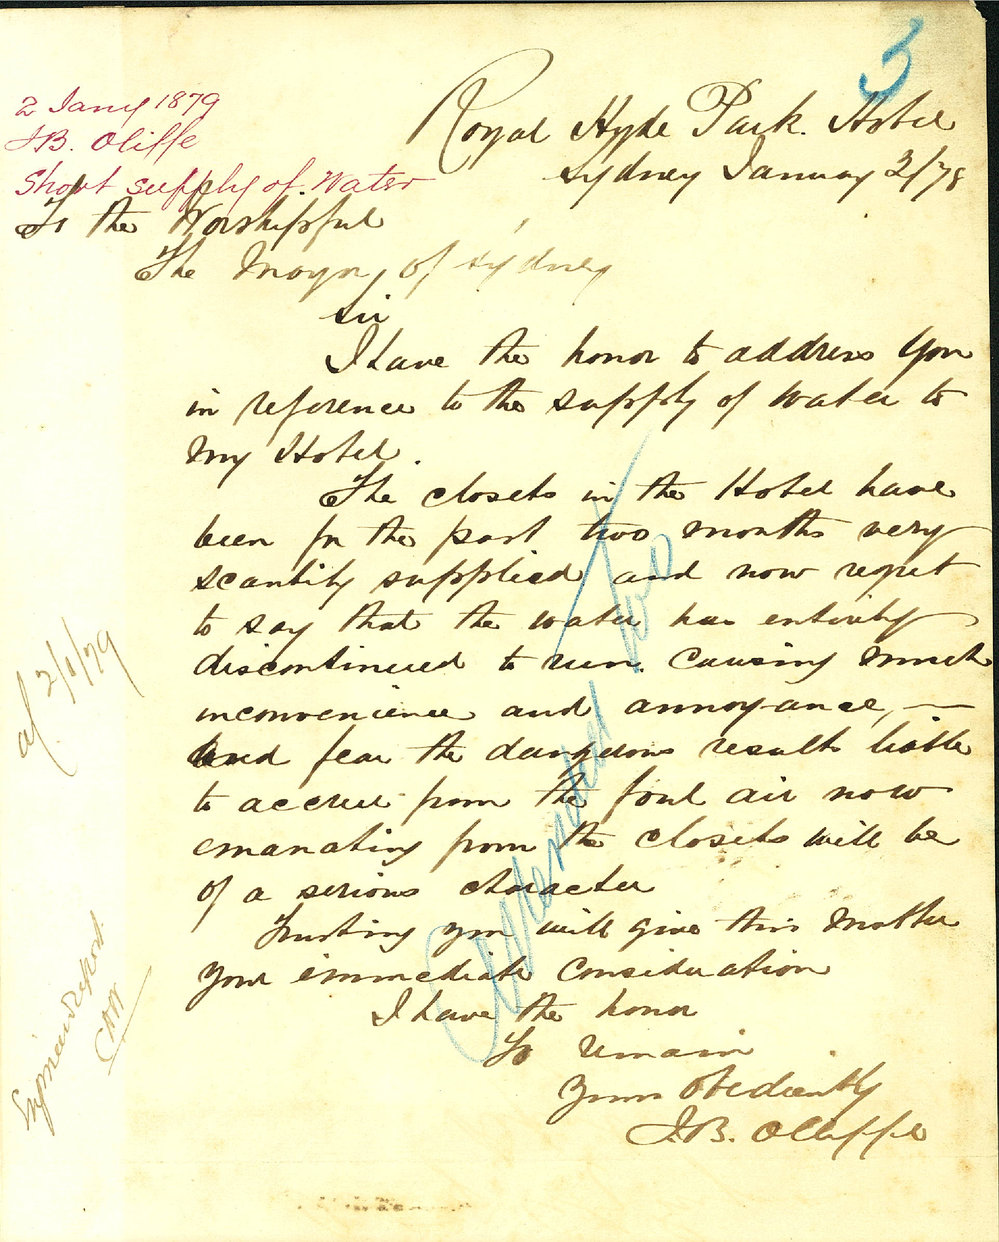 5
2 Jany 1879
J.B. Oliffe
Short supply of Water
Royal Hyde Park Hotel
Sydney January 2/78
To the Worshipful
The Mayor of Sydney
Sir
I have the honor to address You
in reference to the supply of water to
my Hotel.
The closets in the Hotel have
been for the past two months very
scantily supplied and now regret
to say that the water has entirely
discontinued to run causing much
inconvenience and annoyance, —
and fear the dangerous results liable
to accrue from the foul air now
emanating from the closets will be
of a serious character
Trusting you will give this matter
your immediate consideration
I have the honor
To remain
Yours Obediently
J.B. Oliffe
Attended to
2/1/79
Report